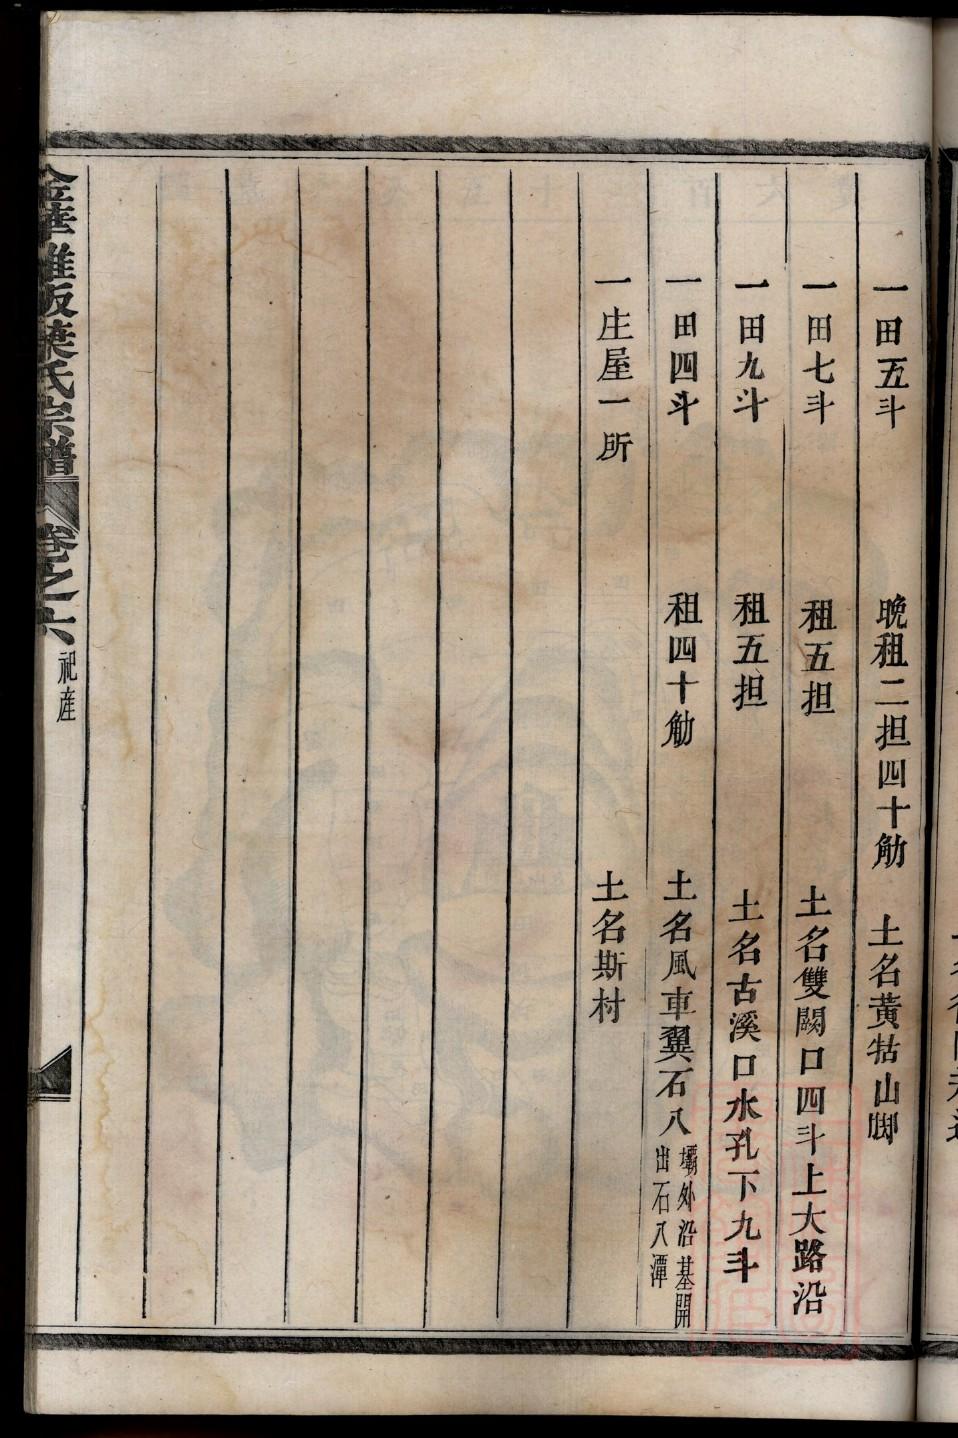 一田五斗　晚租二担四十觔　土名黃牯山脚
一田七斗　租五担　土名雙闕口四斗上大路沿
一田九斗　租五担　土名古溪口水孔下九斗
一田四斗　租四十觔　土名風車翼石八
壩外沿基開
出石八潭
一庄屋一所　土名斯村
葉氏宗譜　卷之六　祀產